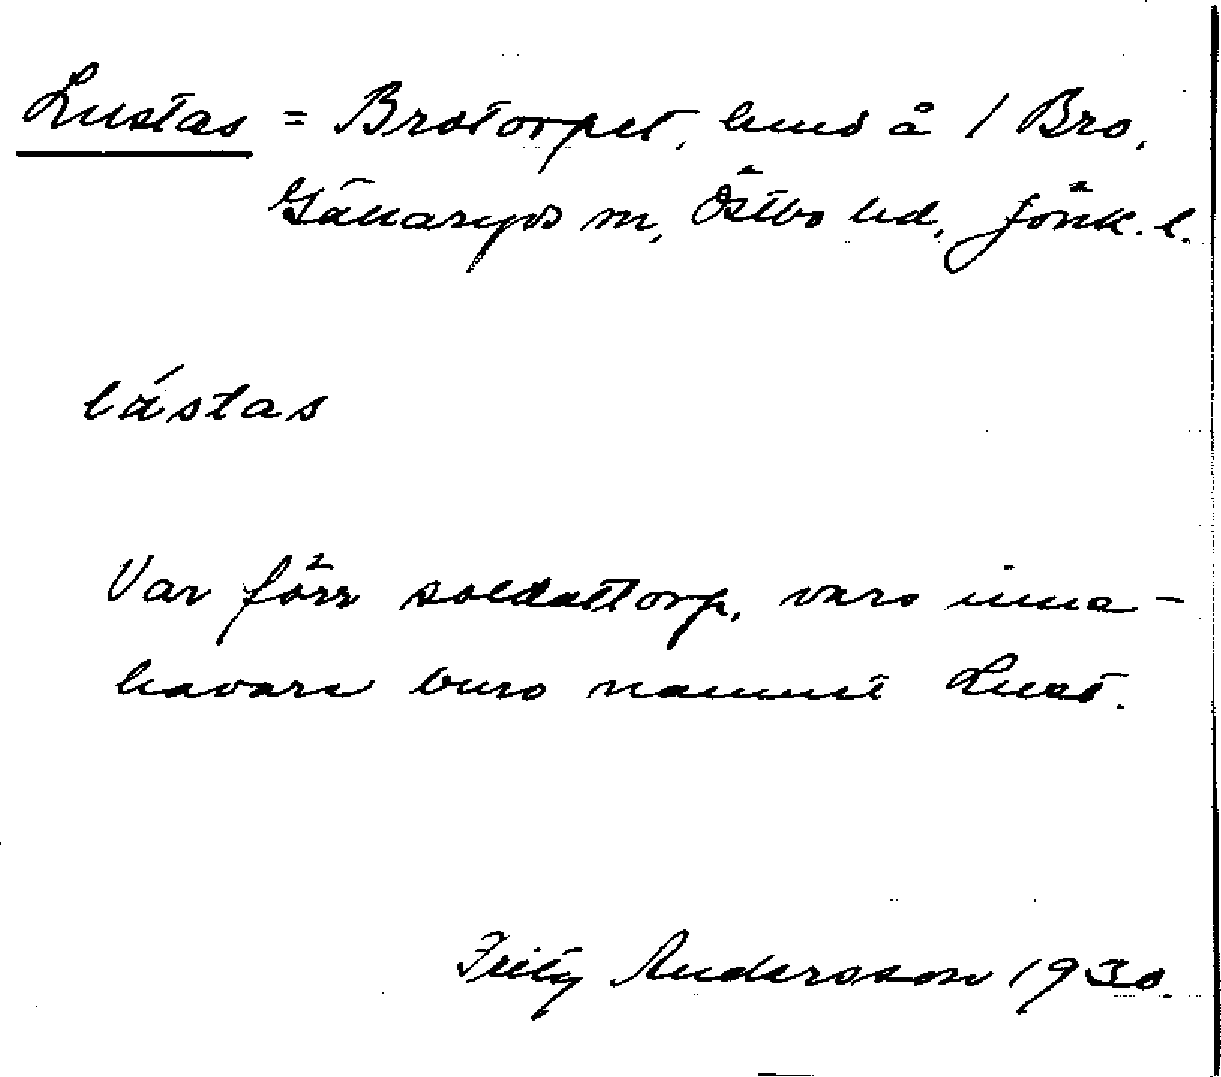 Lustas = Brotorpet, hus å 1 Bro,
Gällaryds sn, Östbo hd, Jönk. l.
lústas
Var förr soldattorp, vars inne-
havare buro namnet Lust.
Fritz Andersson 1930.